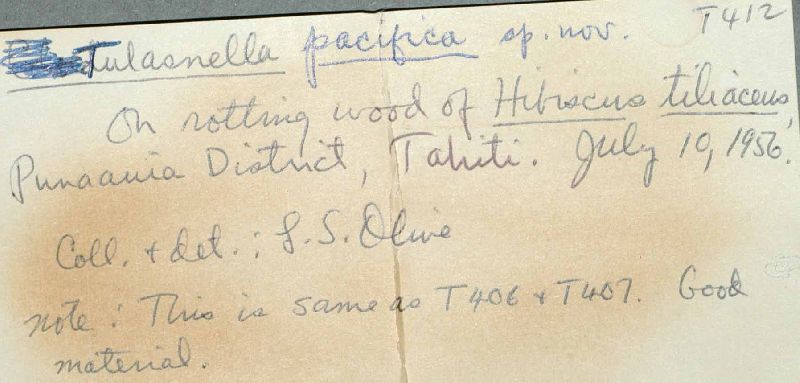 T412
Tulasnella pacifica sp. nov.
On rotting wood of Hibiscus tiliaceus,
Punaauia District, Tahiti. July 10, 1956.
Coll. + det.: L.S. Olive
note: This is same as T406 + T407. Good
material.